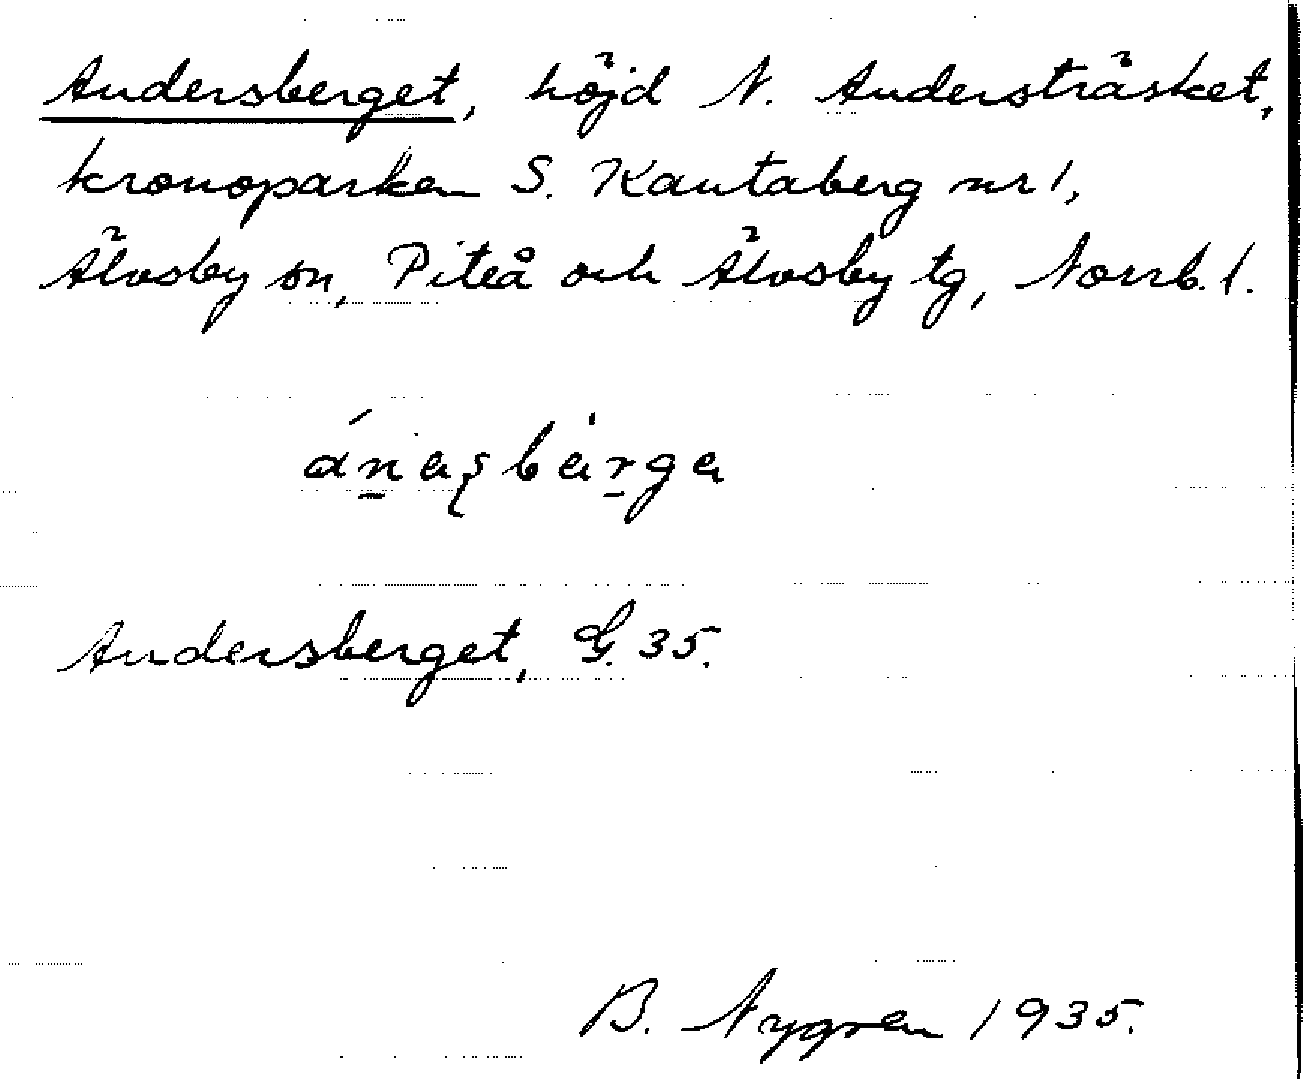 Andersberget, höjd N. Andersträsket,
kronoparken S. Kautaberg nr 1,
Älvsby sn, Piteå och Älvsby tg, Norrb. l.
Andersberget, G. 35.
B. Nygren 1935.